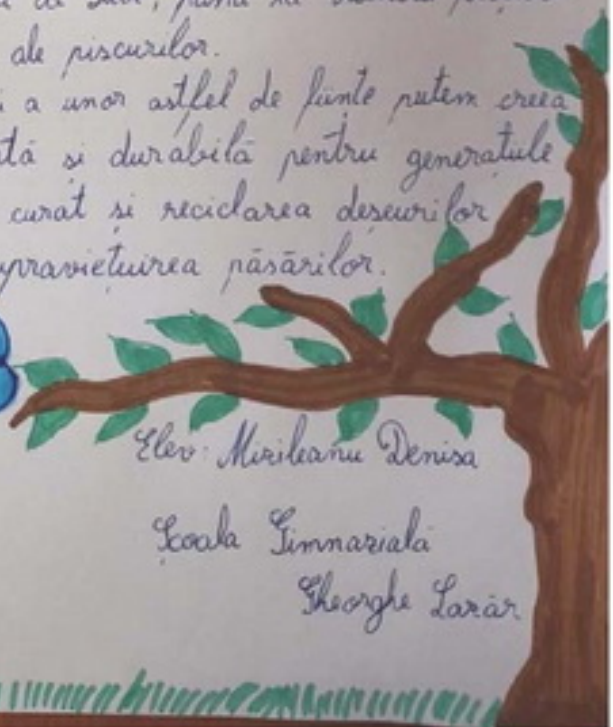 ale piscurilor.
a unor astfel de ființe putem creea
și durabilă pentru generațule
curat și reciclarea deșeurilor
păsărilor.
Elev: Mirileanu Denisa
Școala Gimnazială
Gheorghe Lazăr